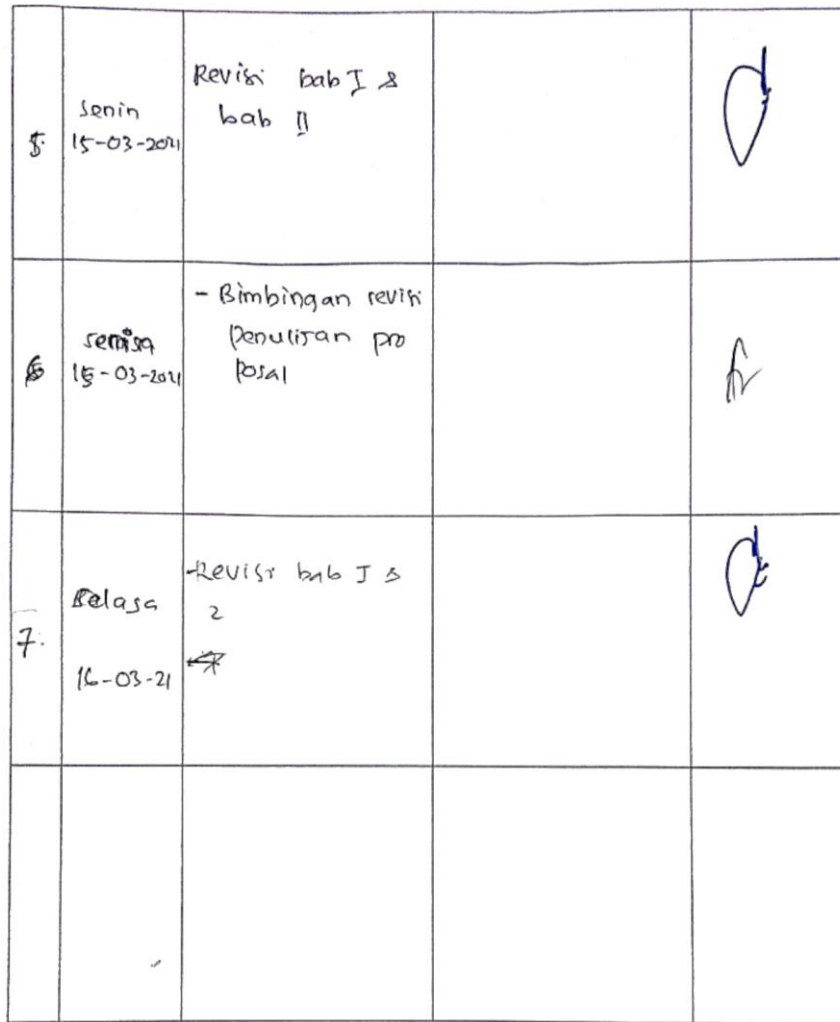 5.
Senin
15-03-2021
Revisi bab I &
bab II
6
15-03-2021
- Bimbingan revisi
penulisan pro
posal
7.
Selasa
16-03-21
- Revisi bab I &
2